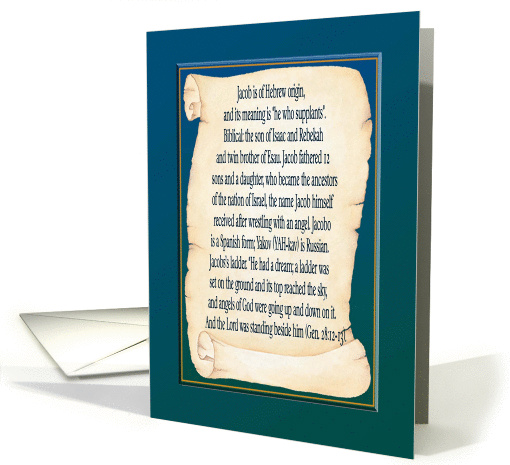 Jacob is of Hebrew origin,
and its meaning is "he who supplants".
Biblical: the son of Isaac and Rebekah
and twin brother of Esau. Jacob fathered 12
sons and a daughter, who became the ancestors
of the nation of Israel, the name Jacob himself
received after wrestling with an angel. Jacobo
is a Spanish form; Yakov (YAH-kav) is Russian.
Jacobs's ladder. "He had a dream; a ladder was
set on the ground and its top reached the sky,
and angels of God were going up and down on it.
And the Lord was standing beside him (Gen. 28:12-13).